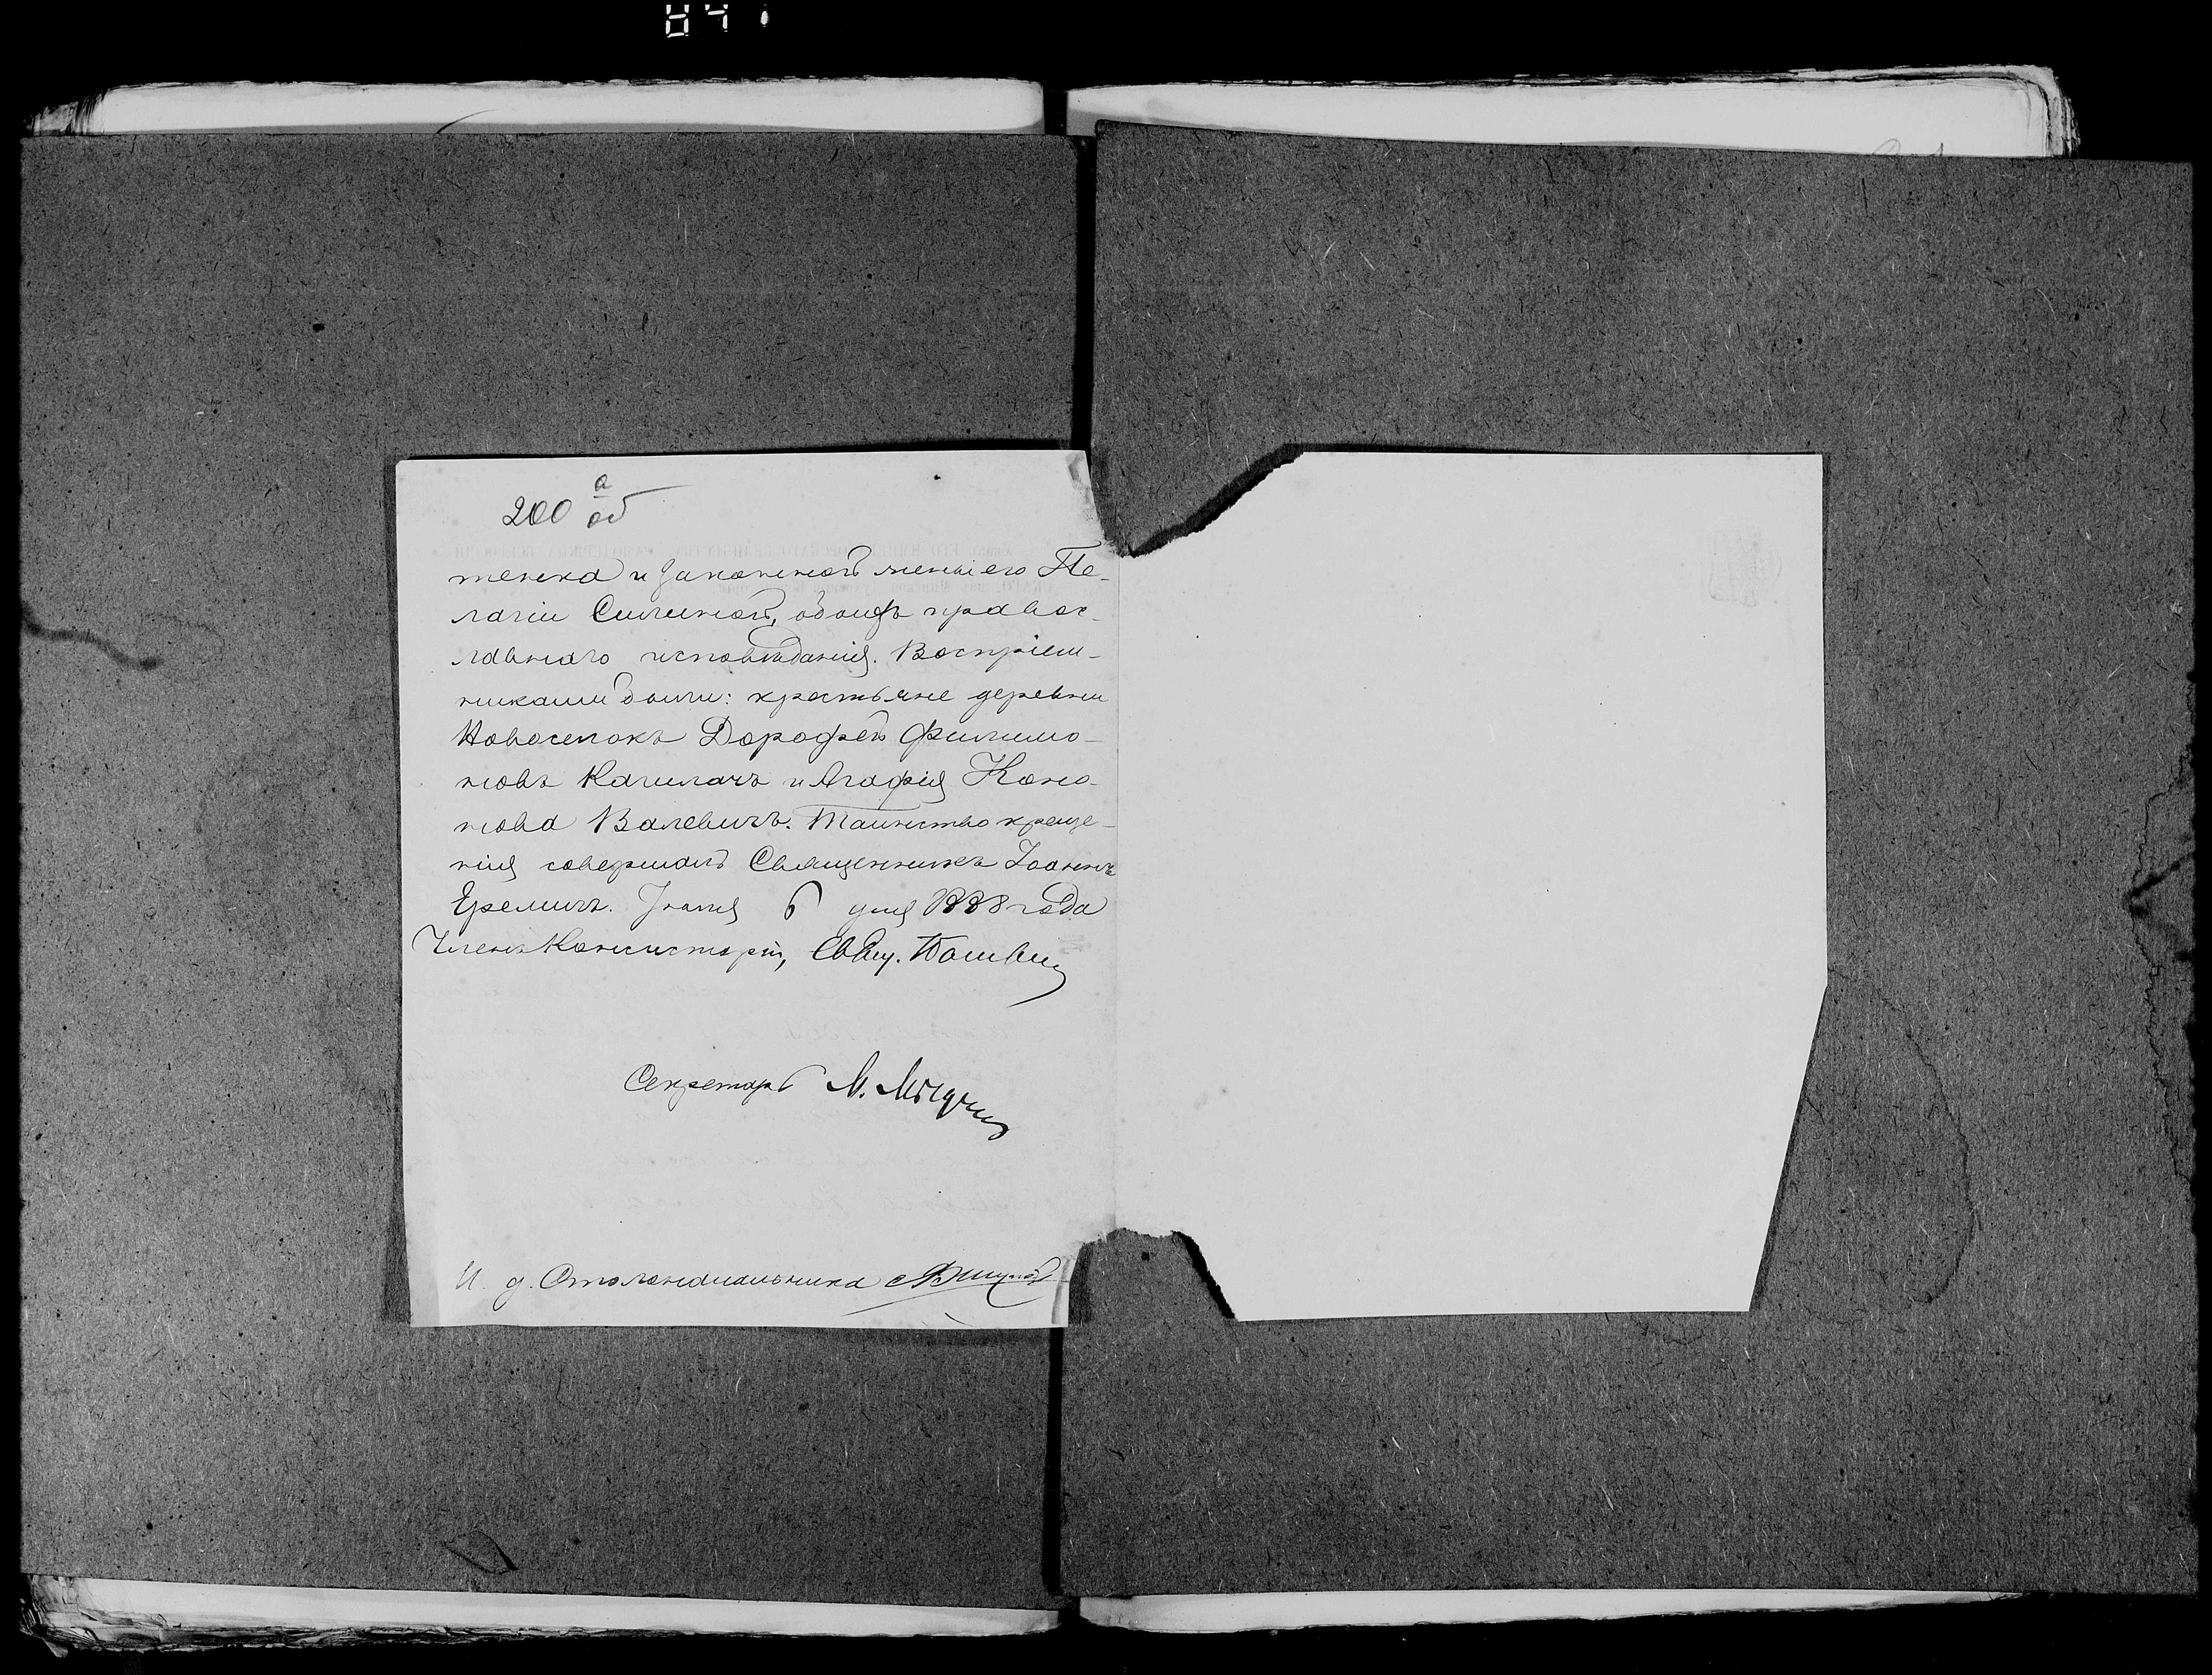 841
200 а/об
тенка и законной жены его Пе-
лагіи Силиной, обоихъ правос-
лавнаго исповѣданія. Воспріем-
никами были: крестьяне деревни
Новоселокъ Дорофей Филимо-
новъ Качиларъ и Агафія Коно-
нова Валевичъ. Таинство креще-
нія совершалъ Священникъ Іоаннъ
Еремичъ. Іюня 6 дня 1888 года
Членъ Консисторіи, Свящ.
Секретарь М.
И. д. Столоначальника